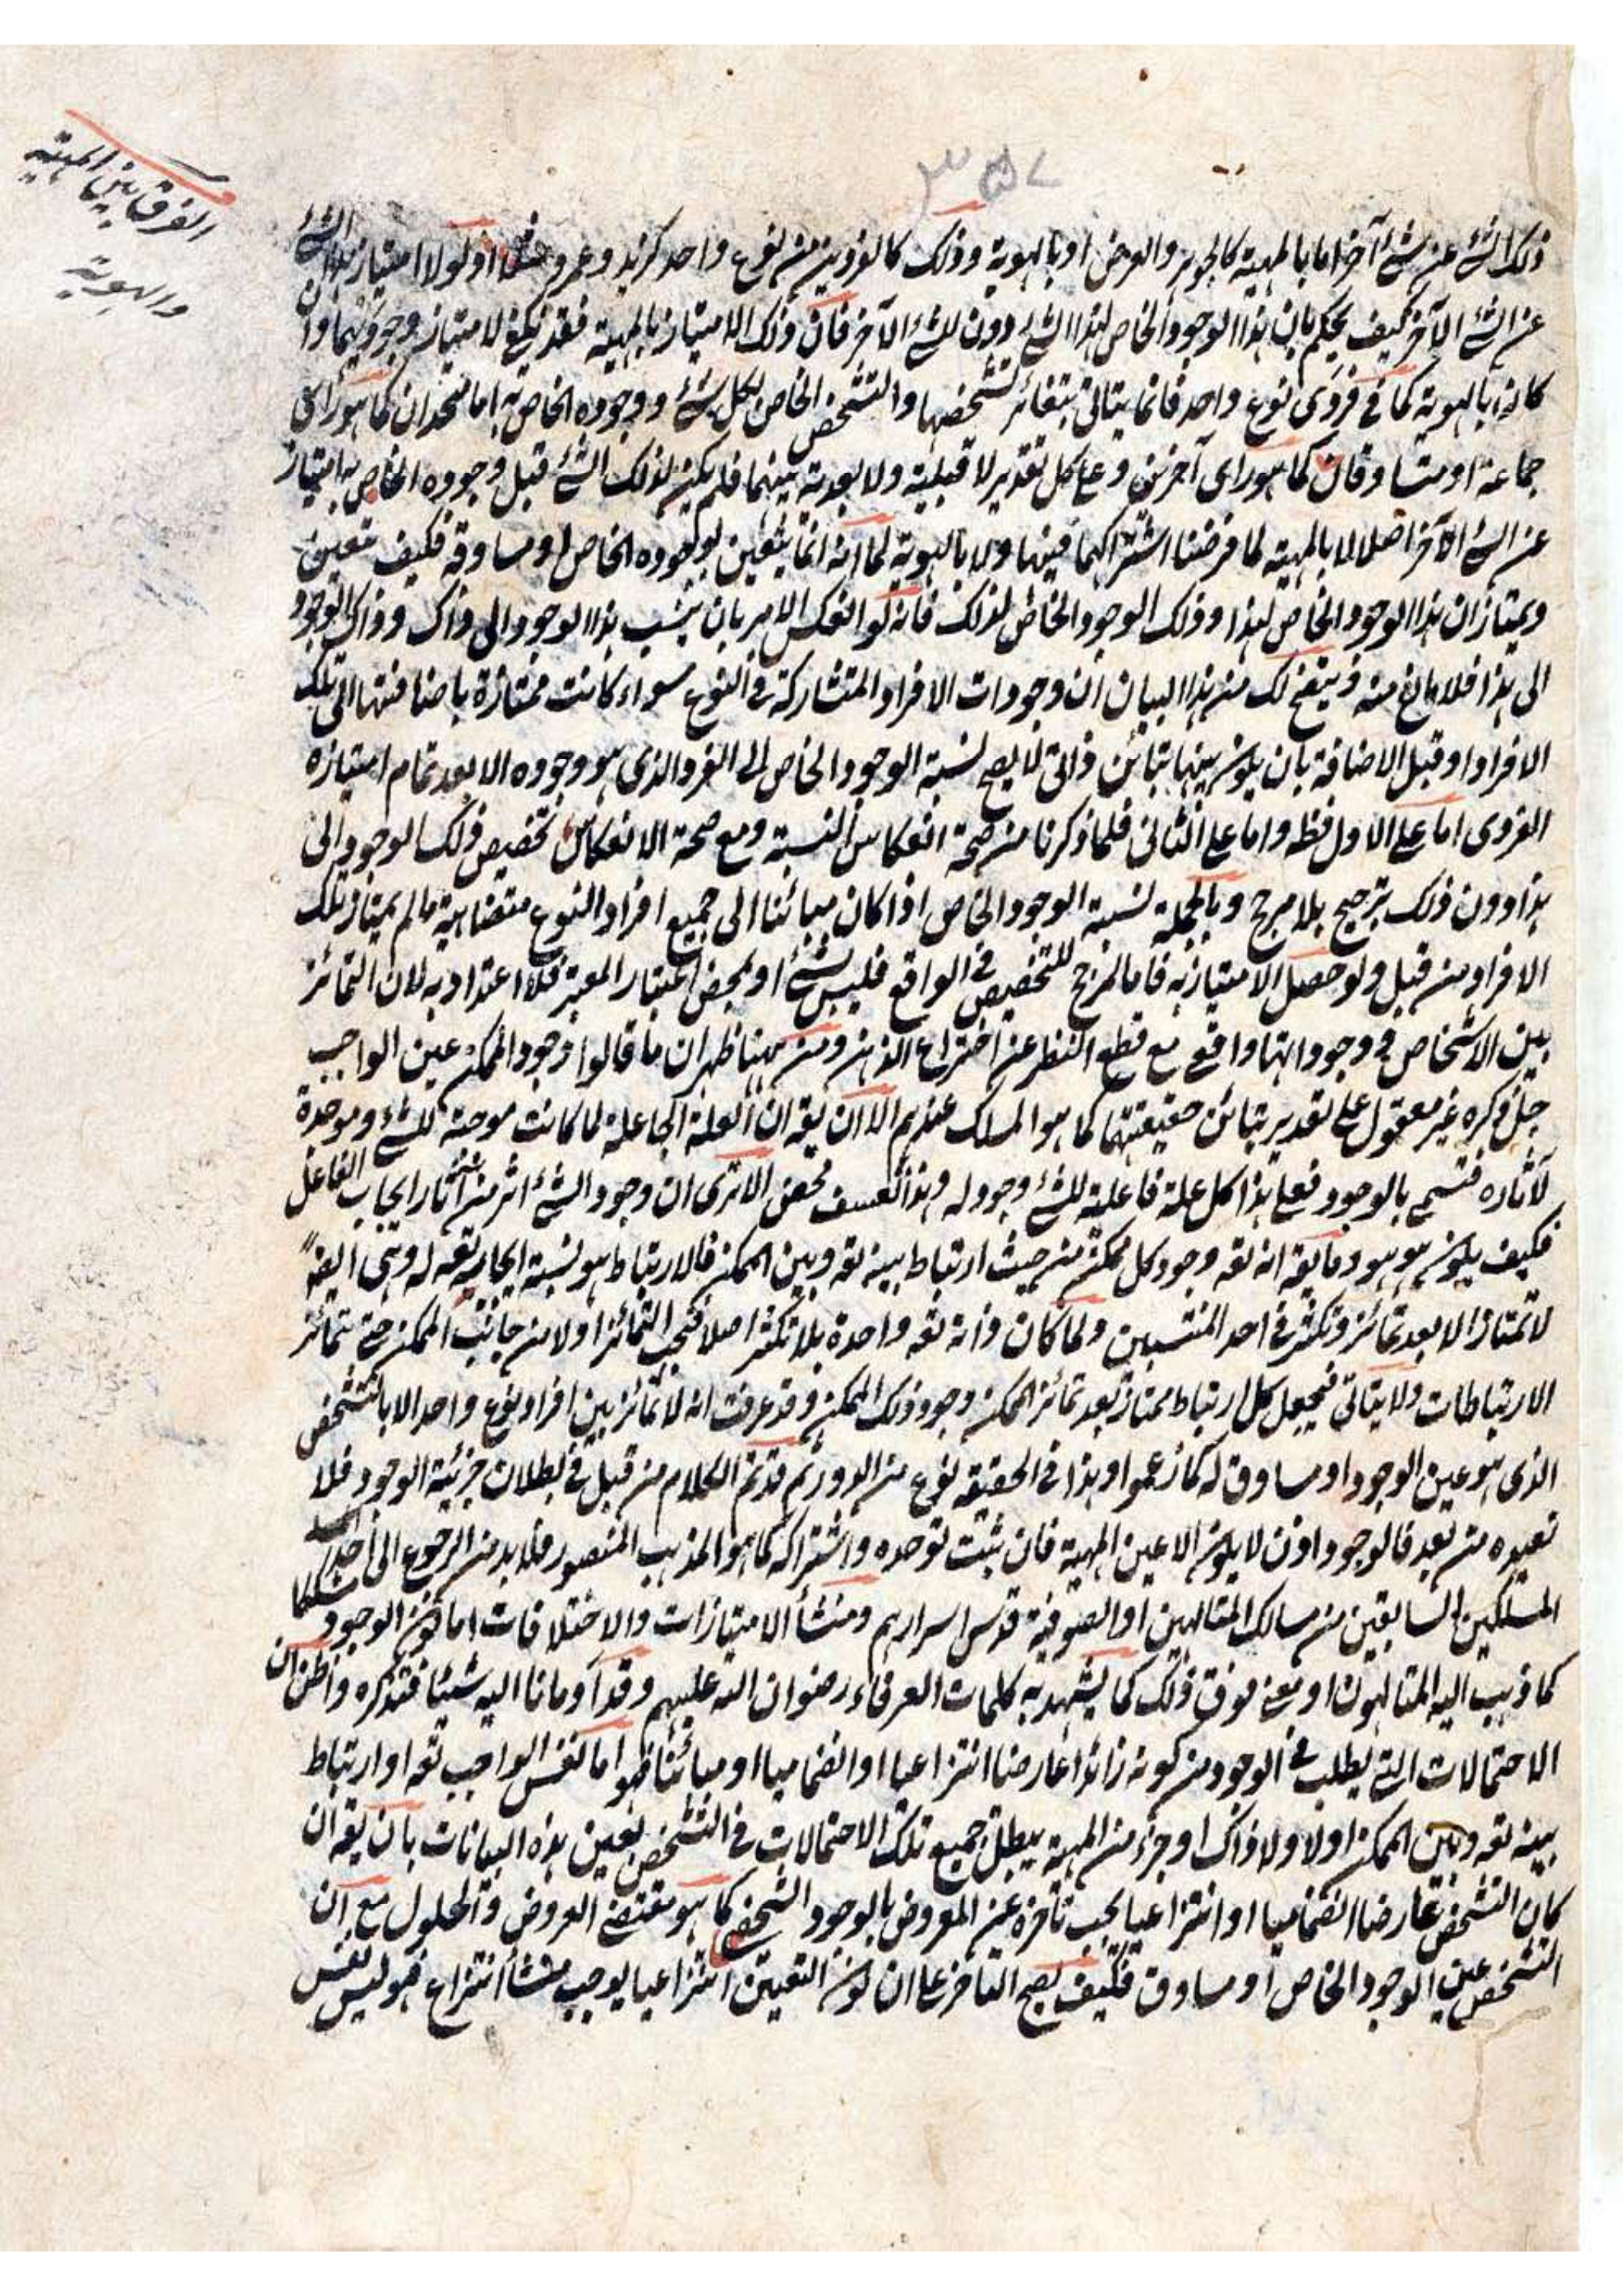 ٣٥٧
الفرق بين المهية
والهوية
ذلك الشئ عن شئ آخر اما بالمهية كالجوهر والعرض او بالهوية وذلك كالفردين من نوع واحد كزيد وعمرو مثلا اذ لولا امتياز هذا الشئ
عن الشئ الآخر كيف يحكم بان هذا الوجود الخاص لهذا الشئ دون الشئ الآخر فان ذلك الامتياز بالمهية فقد يكفي لامتياز وجوديهما وان
كان بالهوية كما في فردى نوع واحد فانما يتاتى بتغائر تشخصها والتشخص الخاص لكل شئ ووجوده الخاص به اما متحدان كما هو راى
جماعة او متساوقان كما هو راى آخرين وعلى كل تقدير لا قبلية ولا بعدية بينهما فلم يكن لذلك الشئ قبل وجوده الخاص به امتياز
عن الشئ الآخر اصلا لا بالمهية لما فرضنا اشتراكهما فيها ولا بالهوية لما انه انما يتعين بوجوده الخاص او مساوقه فكيف تعين
ويمتاز ان هذا الوجود الخاص لهذا وذلك الوجود الخاص لذلك فانه لو انعكس الامر بان ينسب هذا الوجود الى ذاك وذاك الوجود
الى هذا فلا مانع منه ويتضح لك من هذا البيان ان وجودات الافراد المتشاركة في النوع سواء كانت ممتازة باضافتها الى تلك
الافراد او قبل الاضافة بان يكون بينها تباين ذاتى لا يصح نسبة الوجود الخاص الى الفرد الذى هو وجوده الا بعد تمام امتيازه
الفردى اما على الاول فظ واما على الثانى فلما ذكرنا من صحة انعكاس النسبة ومع صحة الانعكاس تخصيص ذلك الوجود الى
هذا دون ذلك ترجيح بلا مرجح وبالجملة نسبة الوجود الخاص اذا كان مبائنا الى جميع افراد النوع متضاهية ما لم يمتاز تلك
الافراد من قبل ولو حصل الامتياز به فاما المرجح للتخصيص في الواقع فليس بشئ او بمحض اعتبار المعتبر فلا اعتداد به لان التمائز
بين الاشخاص ووجوداتها واقع مع قطع النظر عن اختراع الذهن ومن ههنا ظهر ان ما قالوا وجود الممكن عين الواجب
جل ذكره غير معقول على تقدير تبائن حقيقتهما كما هو المسلك عندهم الا ان يقه ان العلة الجاعلة لما كانت موجبة للشئ وموجدة
لآثاره فتسمى بالوجود فعلى هذا كل علة فاعلة للشئ وجود له وهذا تعسف محض الا ترى ان وجود الشئ اثر من آثار ايجاب الفاعل
فكيف يكون هو هو وما يقه انه تعه وجود كل ممكن من حيث ارتباط بينه تعه وبين الممكن فالارتباط هو نسبة ايجاده تعه له وهى ايضا
لا تمتاز الا بعد تمائز وتكثر في احد المنتسبين ولما كان ذاته تعه واحدة بلا تكثر اصلا فيجب التمائز اولا من جانب الممكن حتى تتمائز
الارتباطات ولا يتاتى فيجعل كل ارتباط ممتاز بعد تمائز الممكن وجود ذلك الممكن وقد عرفت انه لا تمائز بين افراد نوع واحد الا بالتشخص
الذى هو عين الوجود او مساوق له كما زعموا وهذا في الحقيقة نوع من الدور ثم قد تم الكلام من قبل في بطلان جزئية الوجود فلا
نعيده من بعد فالوجود اذن لا يكون الا عين المهية فان ثبت توحده واشتراكه كما هو المذهب المنصور فلا بد من الرجوع الى احد
المسلكين السابقين من مسالك المتالهين او الصوفية قدس اسرارهم ومنشأ الامتيازات والاختلافات اما كون الوجود مشككا
كما ذهب اليه المتالهون او معنى فوق ذلك كما يشهد به كلمات العرفاء رضوان الله عليهم وقد اومانا اليه شيئا فتذكره واظن ان
الاحتمالات التى يطلب في الوجود من كونه زائدا عارضا انتزاعيا او انضماميا او مبائنا هو اما نفس الواجب تعه او ارتباط
بينه تعه وبين الممكن اولا ولا ذاك او جزء من المهية يبطل جميع تلك الاحتمالات في التشخص بعين هذه البيانات بان يقه ان
كان التشخص عارضا انضماميا او انتزاعيا يجب تاخره عن المعروض بالوجود الشخصى كما هو مقتضى العروض والحلول مع ان
التشخص عين الوجود الخاص او مساوق فكيف يصح التاخر على ان كون التعين انتزاعيا يوجب منشأ انتزاع فهو ليس نفس